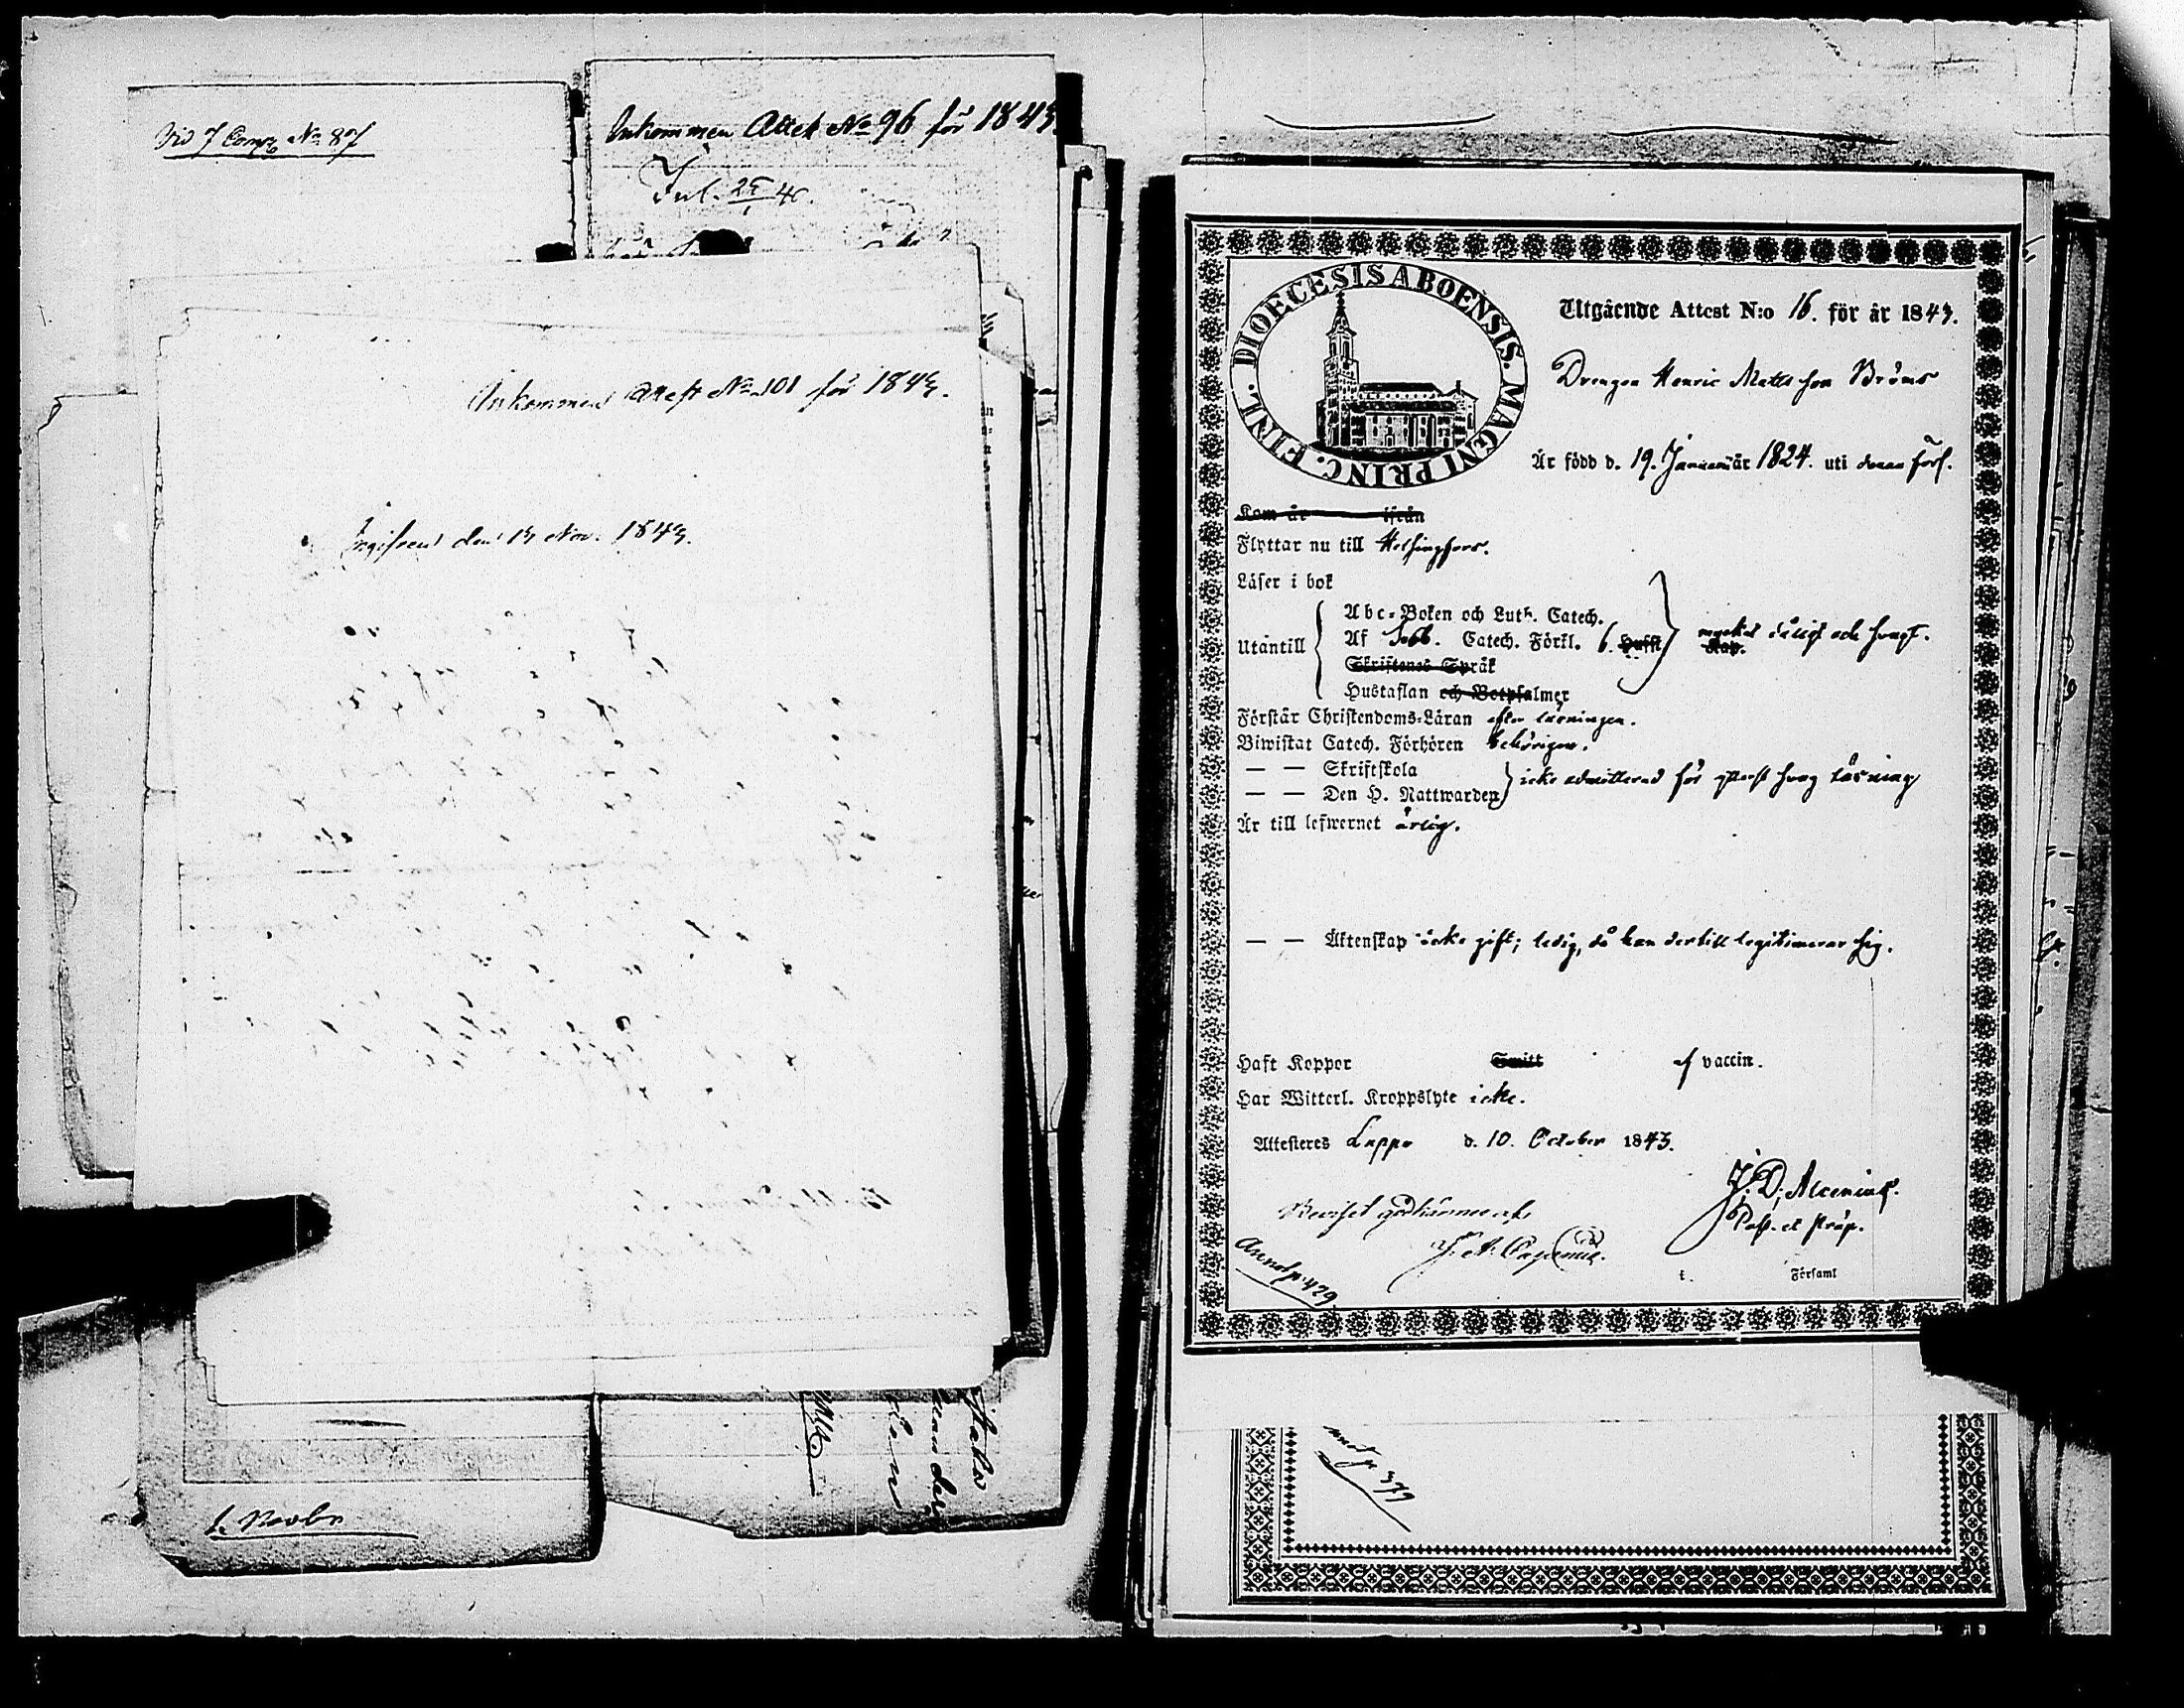 Vid 7 Comp. No 87
Inkommen Attest No 96 för 1843.
Inkommen Attest No 101 för 1843.
Ingifven den 13 Nov. 1843.
DIOECESIS ABOENSIS. MAGNI PRINC. FINL.
Utgående Attest N:o 16. för år 1843.
Drengen Henric Mattsson Bröms
Är född d. 19. Januari år 1824. uti denna förs.
Kom år ifrån
Flyttar nu till Helsingfors.
Läser i bok
Utantill
Abc-Boken och Luth. Catech.
Af Catech. Förkl. 6.
Skriftenes Språk
Hustaflan och Botpsalmer
mycket dåligt och svagt.
Förstår Christendoms-Läran efter läsningen.
Biwistat Catech. Förhören behörigen.
— — Skriftskola
— — Den H. Nattwarden
icke admitterad för ytterst svag läsning
Är till lefwernet ärlig.
— — Äktenskap icke gift; ledig, då han dertill legitimerar sig.
Haft Koppor Smitt af vaccin.
Har Witterl. Kroppslyte icke.
Attesteres Lappo d. 10. October 1843.
J. D. Alcenius.
Past. et Präp.
Beviset godkännes af
Annot p. 429
t. Församl